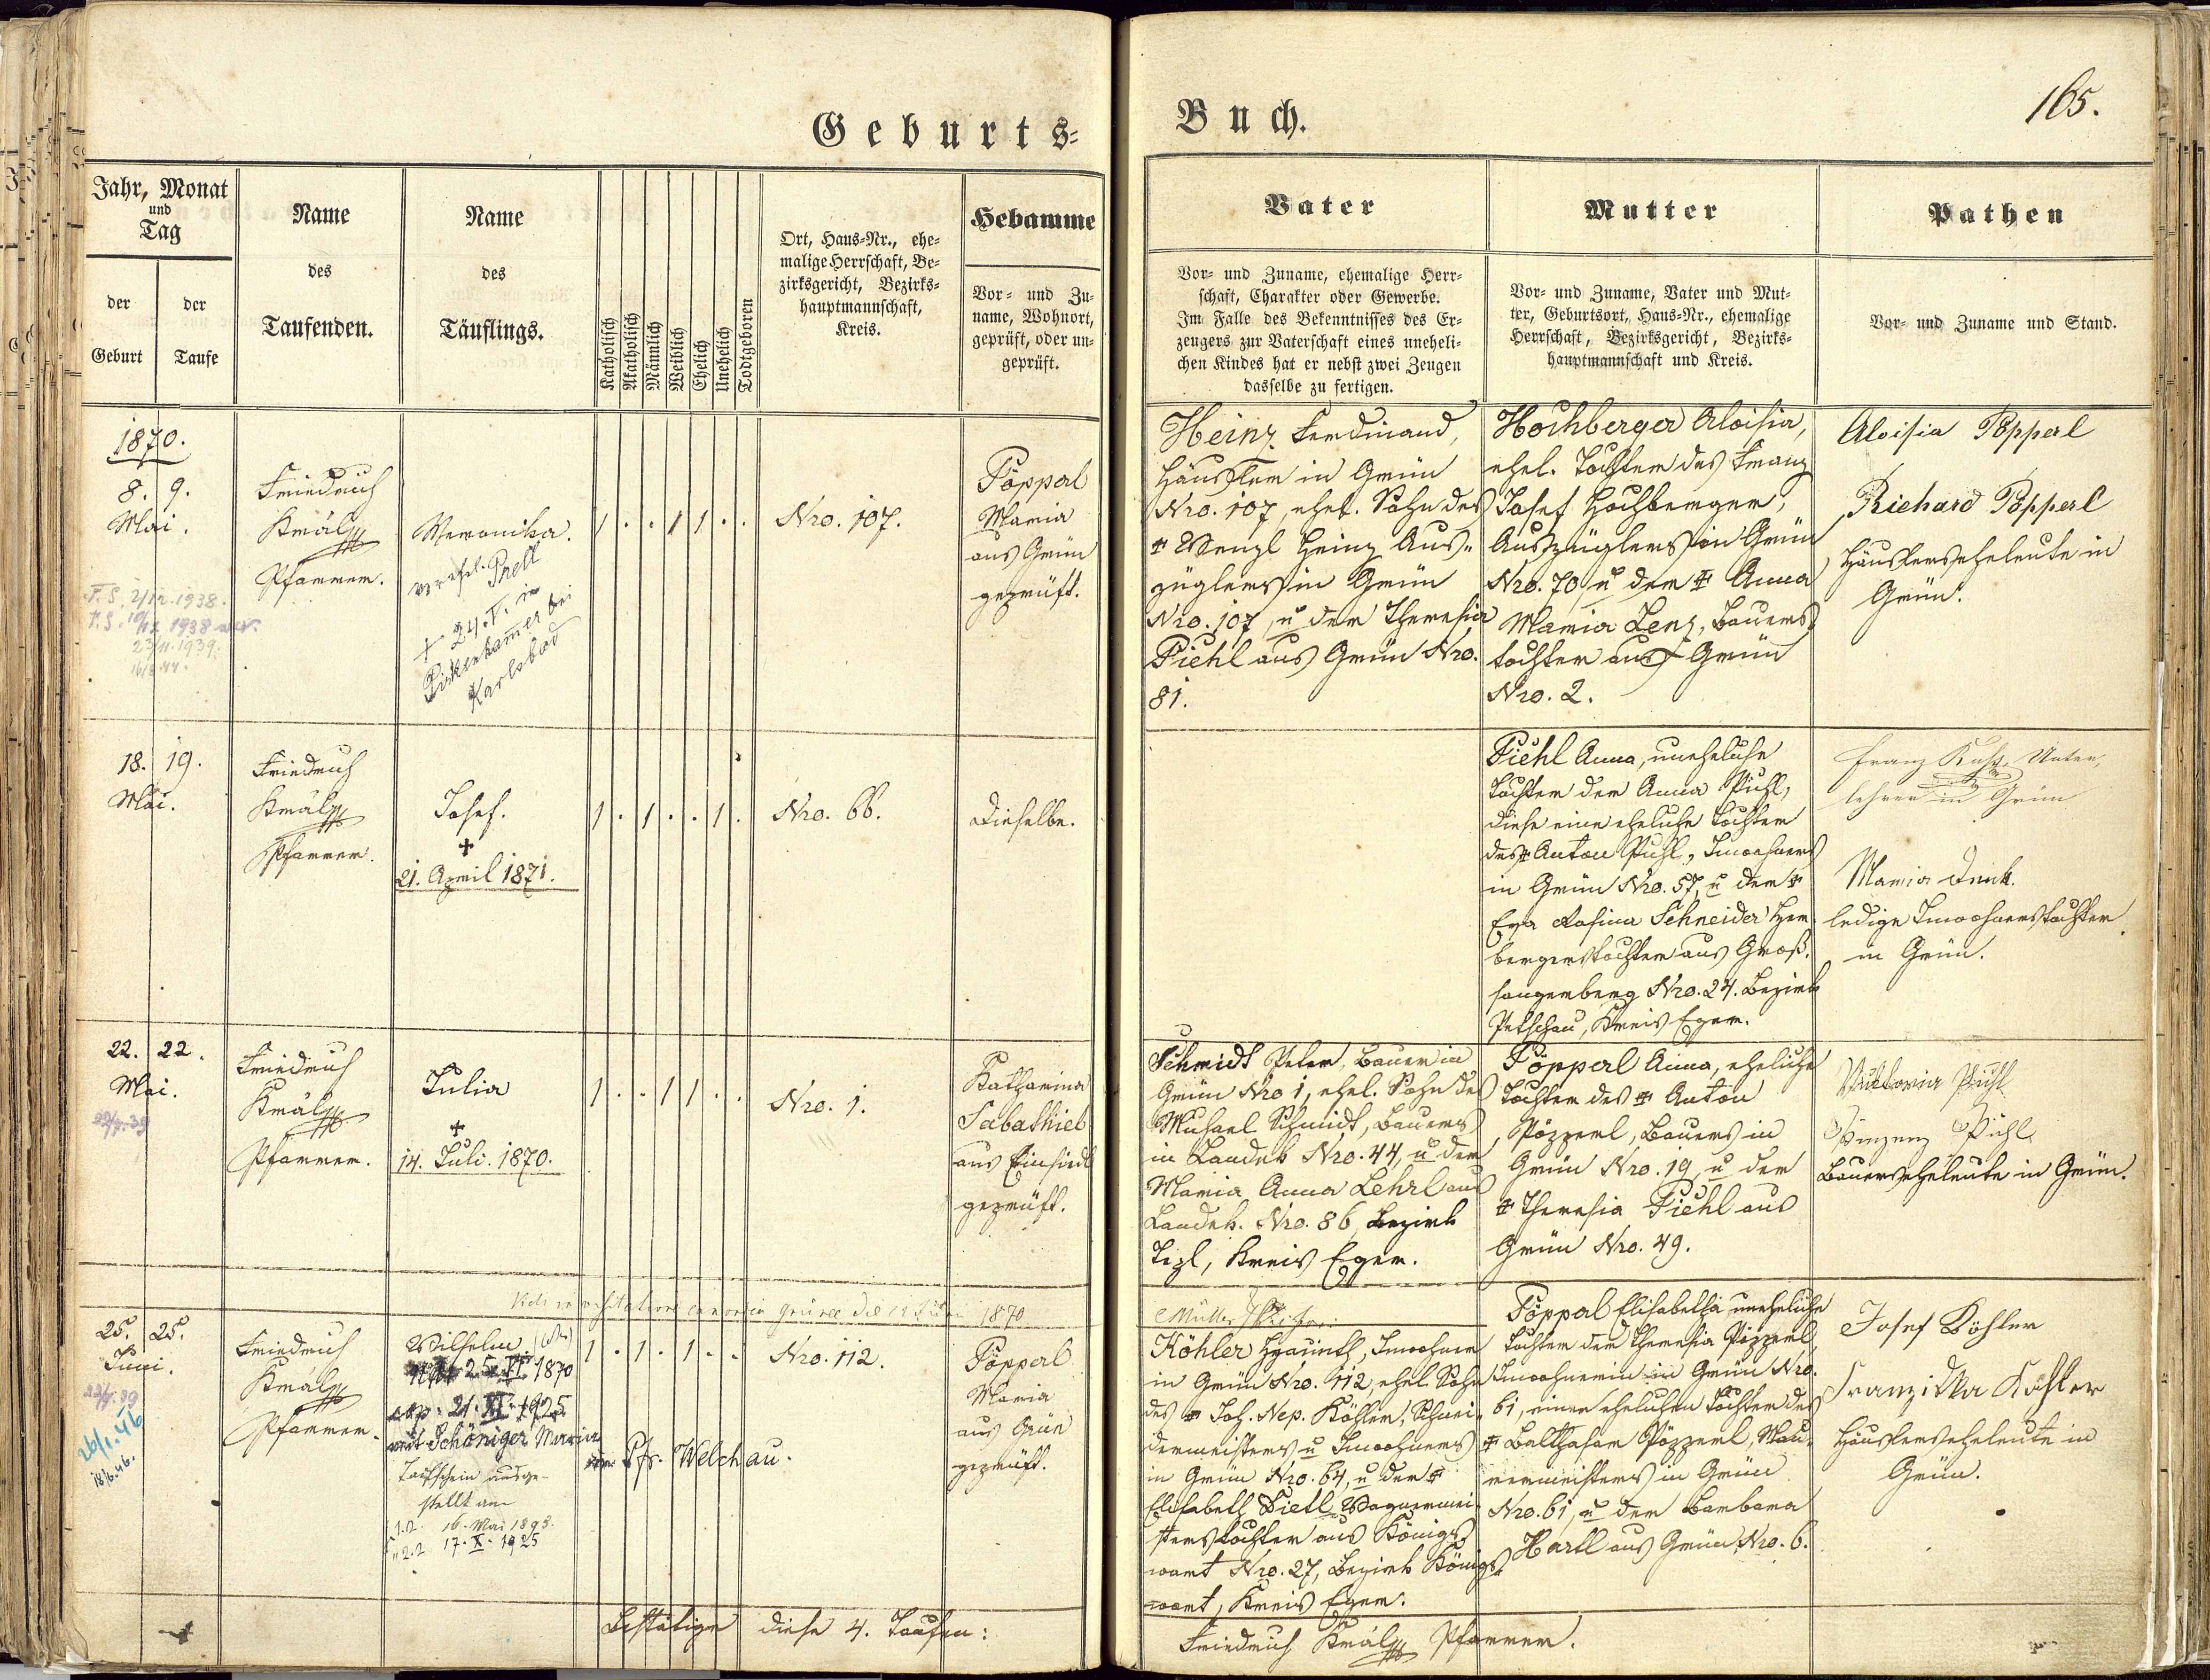 Geburts-
Buch.
165.
Jahr, Monat
und
Tag
der
Geburt
der
Taufe
Name
des
Taufenden.
Name
des
Täuflings.
Katholisch
Akatholisch
Männlich
Weiblich
Ehelich
Unehelich
Todtgeboren
Ort, Haus-Nr., ehe-
malige Herrschaft, Be-
zirksgericht, Bezirks-
hauptmannschaft,
Kreis.
Hebamme
Vor- und Zu-
name, Wohnort,
geprüft, oder un-
geprüft.
Vater
Vor- und Zuname, ehemalige Herr-
schaft, Charakter oder Gewerbe.
Im Falle des Bekenntnisses des Er-
zeugers zur Vaterschaft eines uneheli-
chen Kindes hat er nebst zwei Zeugen
dasselbe zu fertigen.
Mutter
Vor- und Zuname, Vater und Mut-
ter, Geburtsort, Haus-Nr., ehemalige
Herrschaft, Bezirksgericht, Bezirks-
hauptmannschaft und Kreis.
Pathen
Vor- und Zuname und Stand.
1870.
8. 9.
Mai.
T.S. 2/12. 1938.
1938
23/11. 1939.
Friedrich
Král
Pfarrer.
Veronika.
verehel. Prell
+ 24. V. in
Pirkenhammer bei
Karlsbad
1 . . 1 1 . .
Nro. 107.
Pöpperl
Maria
aus Grün
geprüft.
Heinz Ferdinand,
Häusler in Grün
Nro. 107, ehel. Sohn des
+ Wenzl Heinz Aus-
züglers in Grün
Nro. 107, u der Theresia
Piehl aus Grün Nro.
81.
Hochberger Aloisia,
ehel. Tochter des Franz
Josef Hochberger,
Auszüglers in Grün
Nro. 70, u der + Anna
Maria Lenz, Bauers-
tochter aus Grün
Nro. 2.
Aloisia Pöpperl
Richard Pöpperl
Häuslerseheleute in
Grün.
18. 19.
Mai.
Friedrich
Král
Pfarrer.
Josef.
+
21. April 1871.
1 . 1 . . 1 .
Nro. 66.
Dieselbe.
Piehl Anna, uneheliche
Tochter der Anna Piehl,
diese eine eheliche Tochter
des + Anton Piehl, Inwohners
in Grün Nro. 57, u der +
Eva Rosina Schneider Her-
bergerstochter aus Groß-
sangerberg Nro. 24. Bezirk
Petschau, Kreis Eger.
Franz Unter-
lehrer in Grün
Maria Denk
ledige Inwohnerstochter
in Grün.
22. 22.
Mai.
Friedrich
Král
Pfarrer.
Julia
+
14. Juli. 1870.
1 . . 1 1 . .
Nro. 1.
Katharina
Sabathiel
aus Einsiedl
geprüft.
Schmidt Peter, Bauer in
Grün Nro 1, ehel. Sohn des
Michael Schmidt, Bauers
in Landek Nro. 44, u der
Maria Anna Lehrl aus
Landek. Nro. 86, Bezirk
Tepl, Kreis Eger.
Pöpperl Anna, eheliche
Tochter des + Anton
Pöpperl, Bauers in
Grün Nro. 19 u der
+ Theresia Piehl aus
Grün Nro. 49.
Viktoria Piehl
Vinzenz Piehl
Bauerseheleute in Grün.
Vidi in visitatione canonica 1870
25. 25.
Juni.
26/1. 46
18/6. 46.
Friedrich
Král
Pfarrer.
Wilhelm.
25. VI. 1870
cop. 21. XI. 1925
mit Schöniger Maria
Pfr. Welchau.
Taufschein ausge-
stellt am
16. Mai 1893.
17. X. 1925
1 . 1 . 1 . .
Nro. 112.
Pöpperl
Maria
aus Grün
geprüft.
Köhler Hyazinth, Inwohner
in Grün Nro. 112, ehel. Sohn
des + Joh. Nep. Köhler, Schnei-
dermeisters u Inwohners
in Grün Nro. 64, u der +
Elisabeth Dietl, Wagnermei-
sterstochter aus Königs-
wart Nro. 27, Bezirk Königs-
wart, Kreis Eger.
Pöpperl Elisabetha uneheliche
Tochter der Theresia Pöpperl,
Inwohnerin in Grün Nro.
61, einer ehelichen Tochter des
+ Balthasar Pöpperl, Mau-
rermeisters in Grün
Nro. 61, u der Barbara
Hartl aus Grün Nro. 6.
Josef Köhler
Franziska Köhler
Häuslerseheleute in
Grün.
Bestätige diese 4. Taufen:
Friedrich Král Pfarrer.